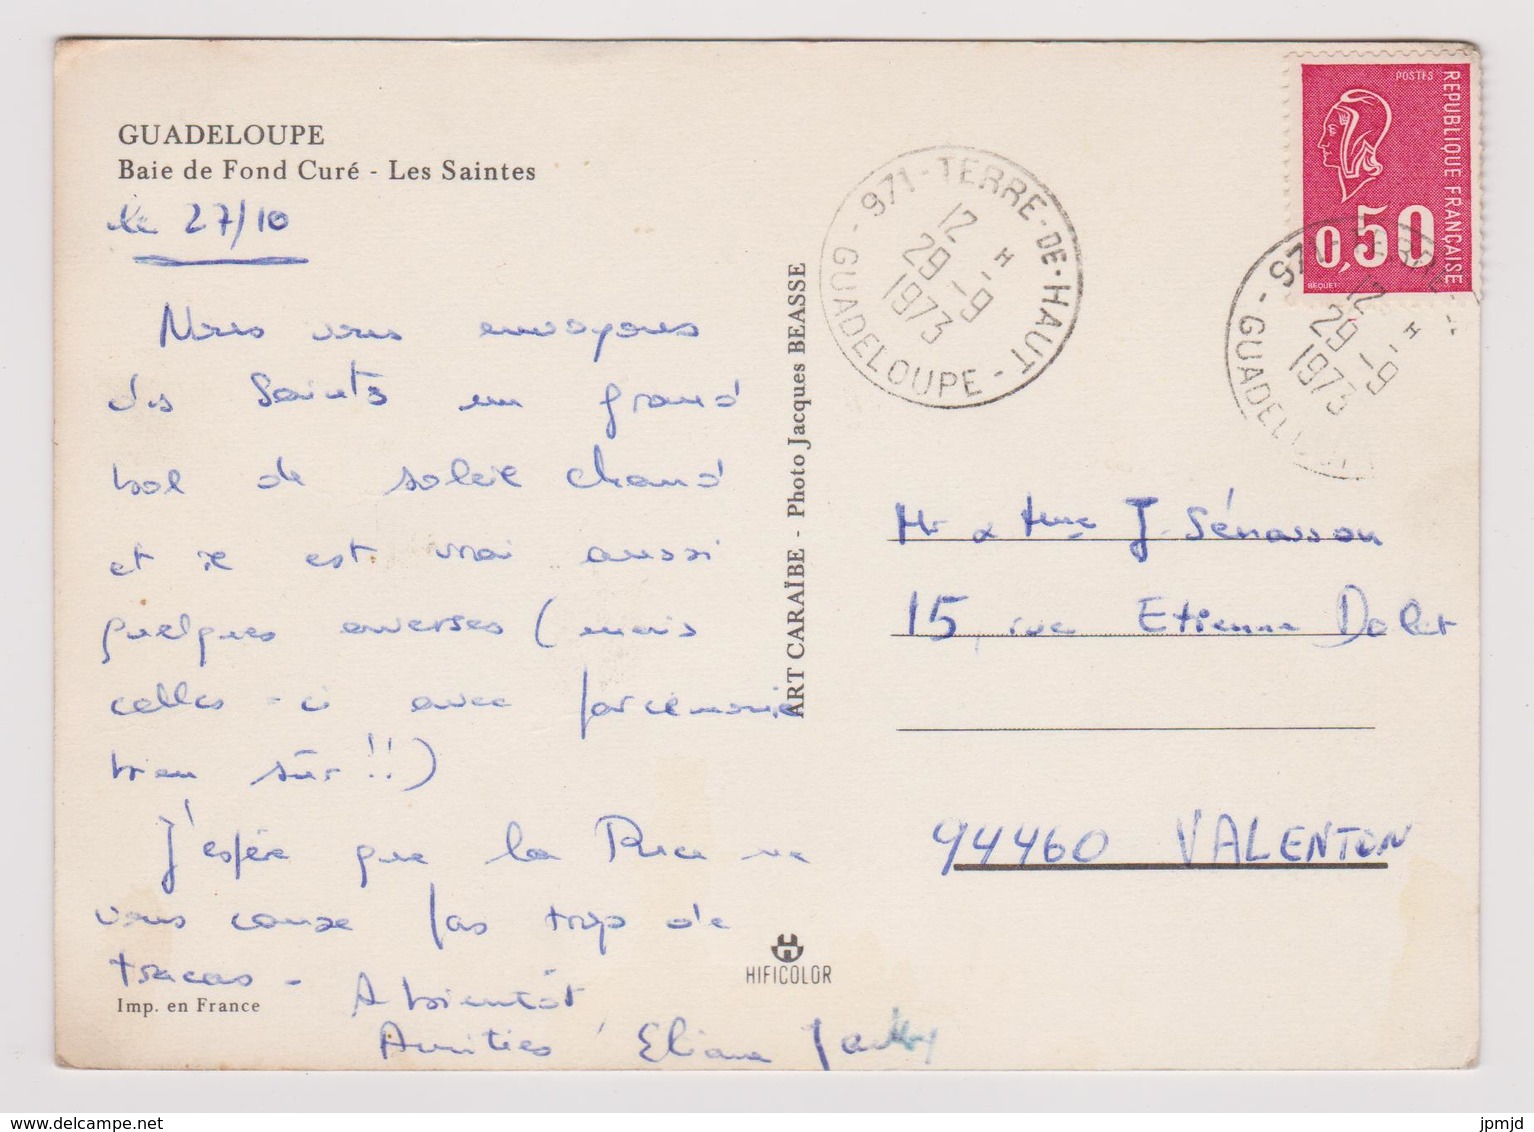 GUADELOUPE
Baie de Fond Curé - Les Saintes
le 27/10
Nous vous envoyons
des Saints un grand
bol de soleil chaud
et il est vrai aussi
quelques averses (mais
celles-ci avec parcimonie
bien sûr!!)
J'espère que la Rue ne
vous cause pas trop de
tracas -
A bientôt
Amitiés Eliane
Imp. en France
ART CARAÏBE - Photo Jacques BEASSE
HIFICOLOR
971 - TERRE-DE-HAUT - GUADELOUPE -
12 H
29 - 9
1973
POSTES
REPUBLIQUE FRANÇAISE
0,50
BEQUET
971 - TERRE-
GUADEL
12 H
29 - 9
1973
Mr & Mme J. Sénasson
15, rue Etienne Dolet
94460 VALENTON
www.delcampe.net
jpmjd